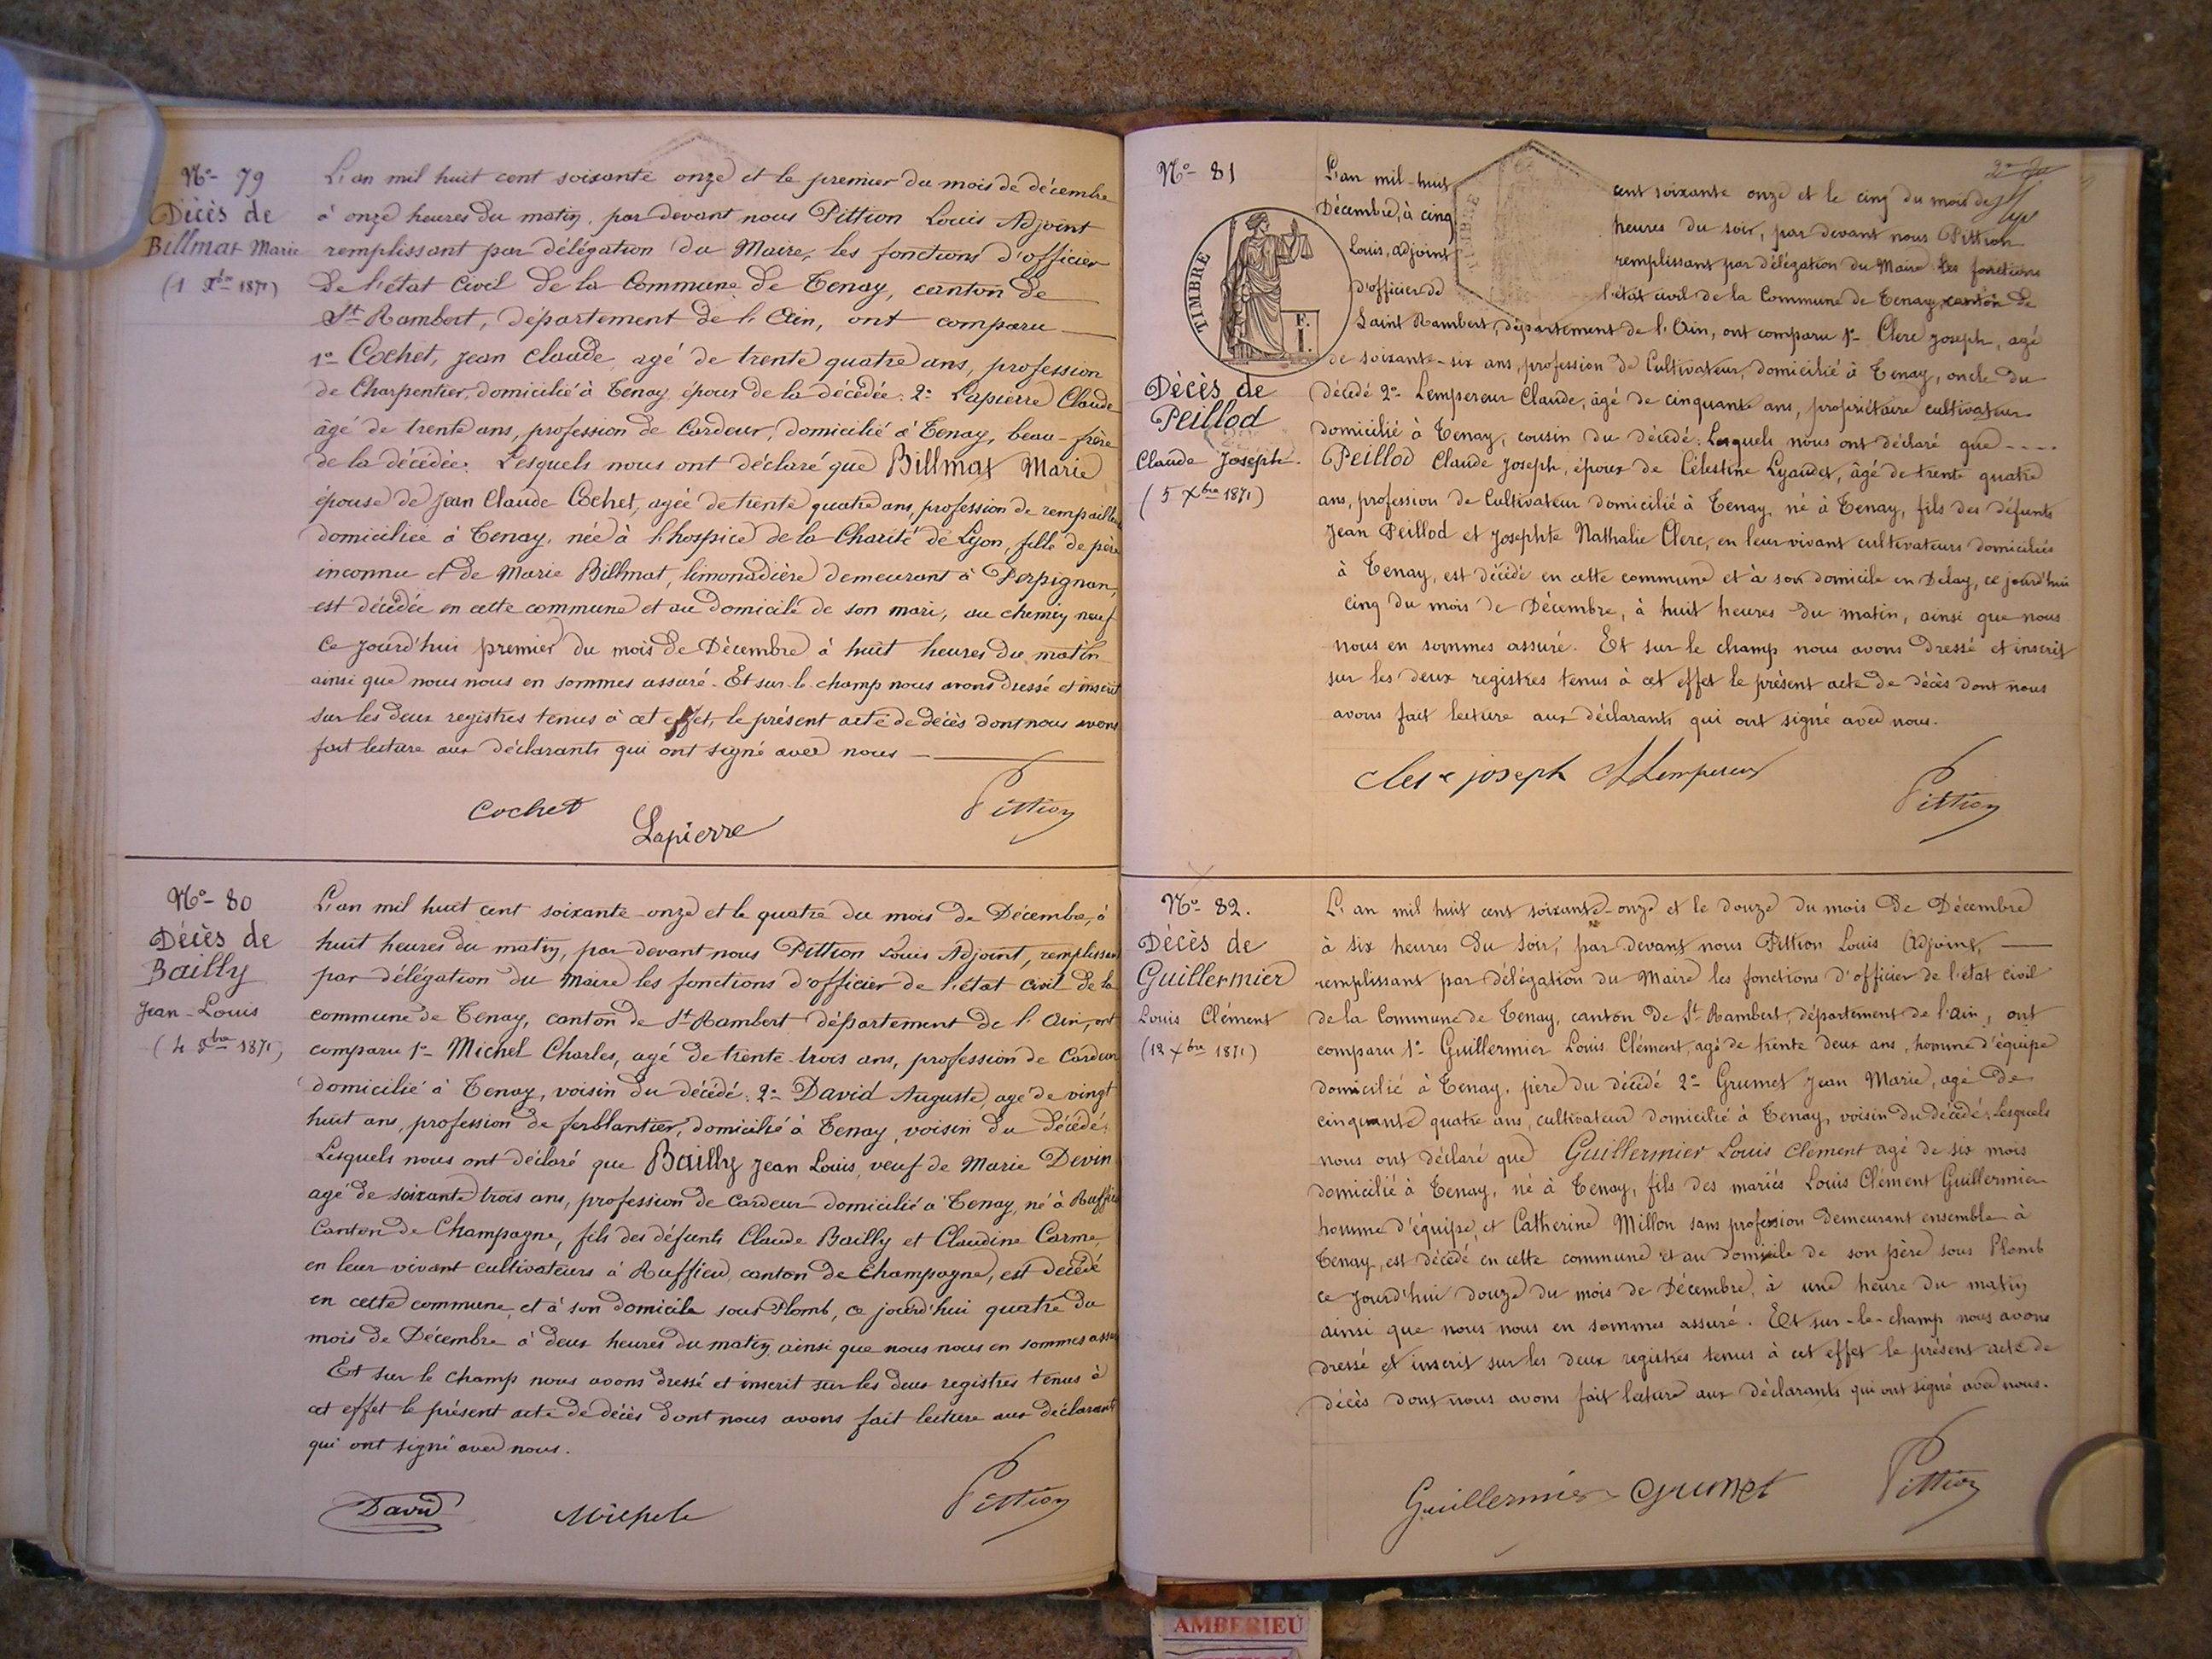 Nº 79
Décès de
Billmat Marie
(1 Xbre 1871)
L'an mil huit cent soixante onze et le premier du mois de décembre
à onze heures du matin, par devant nous Pittion Louis Adjoint
remplissant par délégation du Maire, les fonctions d'officier
de l'état civil de la Commune de Tenay, canton de
St Rambert, département de l'Ain, ont comparu
1º Cochet, Jean Claude, agé de trente quatre ans, profession
de Charpentier, domicilié à Tenay, époux de la décédée. 2º Lapierre Claude
âgé de trente ans, profession de Cardeur, domicilié à Tenay, beau-frère
de la décédée. Lesquels nous ont déclaré que Billmat Marie
épouse de Jean Claude Cochet, agée de trente quatre ans, profession de
domiciliée à Tenay, née à l'hospice de la Charité de Lyon, fille de père
inconnu et de Marie Billmat, limonadière demeurant à Perpignan,
est décédée en cette commune et au domicile de son mari, au chemin neuf
ce jourd'hui premier du mois de Décembre à huit heures du matin
ainsi que nous nous en sommes assuré. Et sur le champ nous avons dressé et inscrit
sur les deux registres tenus à cet effet, le présent acte de décès dont nous avons
fait lecture aux déclarants qui ont signé avec nous
Cochet
Lapierre
Pittion
Nº 80
Décès de
Bailly
Jean-Louis
(4 Xbre 1871)
L'an mil huit cent soixante-onze et le quatre du mois de Décembre, à
huit heures du matin, par devant nous Pittion Louis Adjoint, remplissant
par délégation du Maire les fonctions d'officier de l'état civil de la
commune de Tenay, canton de St Rambert département de l'Ain, ont
comparu 1º Michel Charles, agé de trente-trois ans, profession de Cardeur
domicilié à Tenay, voisin du décédé: 2º David Auguste, agé de vingt
huit ans, profession de ferblantier, domicilié à Tenay, voisin du décédé,
Lesquels nous ont déclaré que Bailly Jean Louis, veuf de Marie Devin
agé de soixante trois ans, profession de Cardeur domicilié à Tenay, né à Ruffieu
Canton de Champagne, fils des défunts Claude Bailly et Claudine Carme,
en leur vivant cultivateurs à Ruffieu, canton de Champagne, est décédé
en cette commune, et à son domicile sous Plomb, ce jourd'hui quatre du
mois de Décembre à deux heures du matin, ainsi que nous nous en sommes
Et sur le champ nous avons dressé et inscrit sur les deux registres tenus à
cet effet le présent acte de décès dont nous avons fait lecture aux déclarants
qui ont signé avec nous.
David
Michel
Pittion
Nº 81
TIMBRE
F. I.
Décès de
Peillod
Claude Joseph.
(5 Xbre 1871)
L'an mil-huit cent soixante onze et le cinq du mois de
Décembre, à cinq heures du soir, par devant nous Pittion
Louis, adjoint remplissant par délégation du Maire les fonctions
d'officier de l'état civil de la Commune de Tenay, canton de
Saint Rambert, département de l'Ain, ont comparu 1º Clerc Joseph, agé
de soixante-six ans, profession de Cultivateur, domicilié à Tenay, oncle du
décédé 2º Lempereur Claude, âgé de cinquante ans, propriétaire cultivateur
domicilié à Tenay, cousin du décédé: Lesquels nous ont déclaré que ----
Peillod Claude Joseph, époux de Célestine Lyaudet, âgé de trente quatre
ans, profession de Cultivateur domicilié à Tenay, né à Tenay, fils des défunts
Jean Peillod et Josephte Nathalie Clerc, en leur vivant cultivateurs domiciliés
à Tenay, est décédé en cette commune et à son domicile en Delay, ce jourd'hui
cinq du mois de Décembre, à huit heures du matin, ainsi que nous
nous en sommes assuré. Et sur le champ nous avons dressé et inscrit
sur les deux registres tenus à cet effet le présent acte de décès dont nous
avons fait lecture aux déclarants qui ont signé avec nous.
Clerc joseph
Lempereur
Pittion
Nº 82.
Décès de
Guillermier
Louis Clément
(12 Xbre 1871)
L'an mil huit cent soixante-onze et le douze du mois de Décembre
à six heures du soir, par devant nous Pittion Louis Adjoint,
remplissant par délégation du Maire les fonctions d'officier de l'état civil
de la Commune de Tenay, canton de St Rambert, département de l'ain, ont
comparu 1º Guillermier Louis Clément, agé de trente deux ans, homme d'équipe
domicilié à Tenay, père du décédé 2º Grumet Jean Marie, agé de
cinquante quatre ans, cultivateur domicilié à Tenay, voisin du décédé, Lesquels
nous ont déclaré que Guillermier Louis Clément agé de six mois
domicilié à Tenay, né à Tenay, fils des mariés Louis Clément Guillermier
homme d'équipe, et Catherine Millon sans profession demeurant ensemble à
Tenay, est décédé en cette commune et au domicile de son père sous Plomb
ce jourd'hui douze du mois de Décembre, à une heure du matin
ainsi que nous nous en sommes assuré. Et sur-le-champ nous avons
dressé et inscrit sur les deux registres tenus à cet effet le présent acte de
décès dont nous avons fait lecture aux déclarants qui ont signé avec nous.
Guillermier
Grumet
Pittion
AMBERIEU